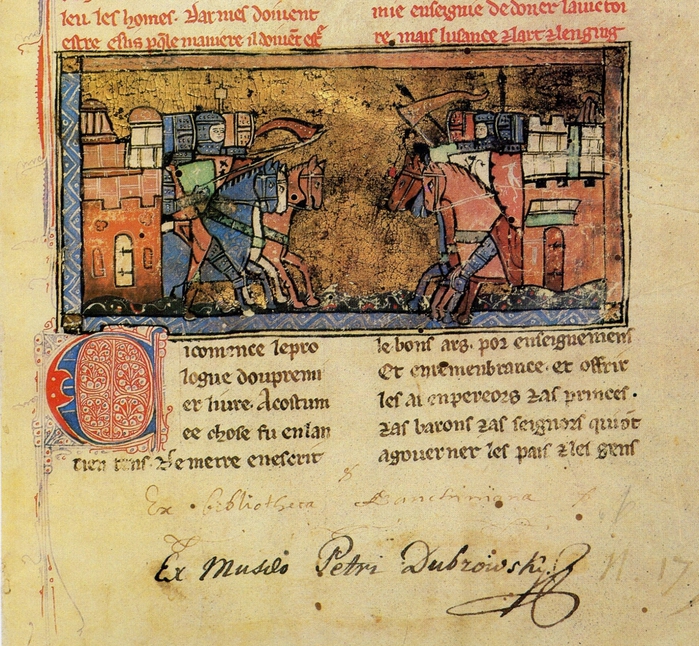 leu les homes. Par mes doivent
estre esliz
mie enseignie de doner la uictoi
re. mais lusance
icomence lepro
logue doupremi
er liure. Acostum
ee chose fu enlan
tens. De metre enescrit
le bons ars. por enseignemens
Et enremenbrance. et offrir
les ai enpereors ⁊as princes.
⁊as barons ⁊as seignors qui ot
agouerner les pais ⁊les gens
Ex bibliotheca
Ex Musæo Petri Dubrowsky